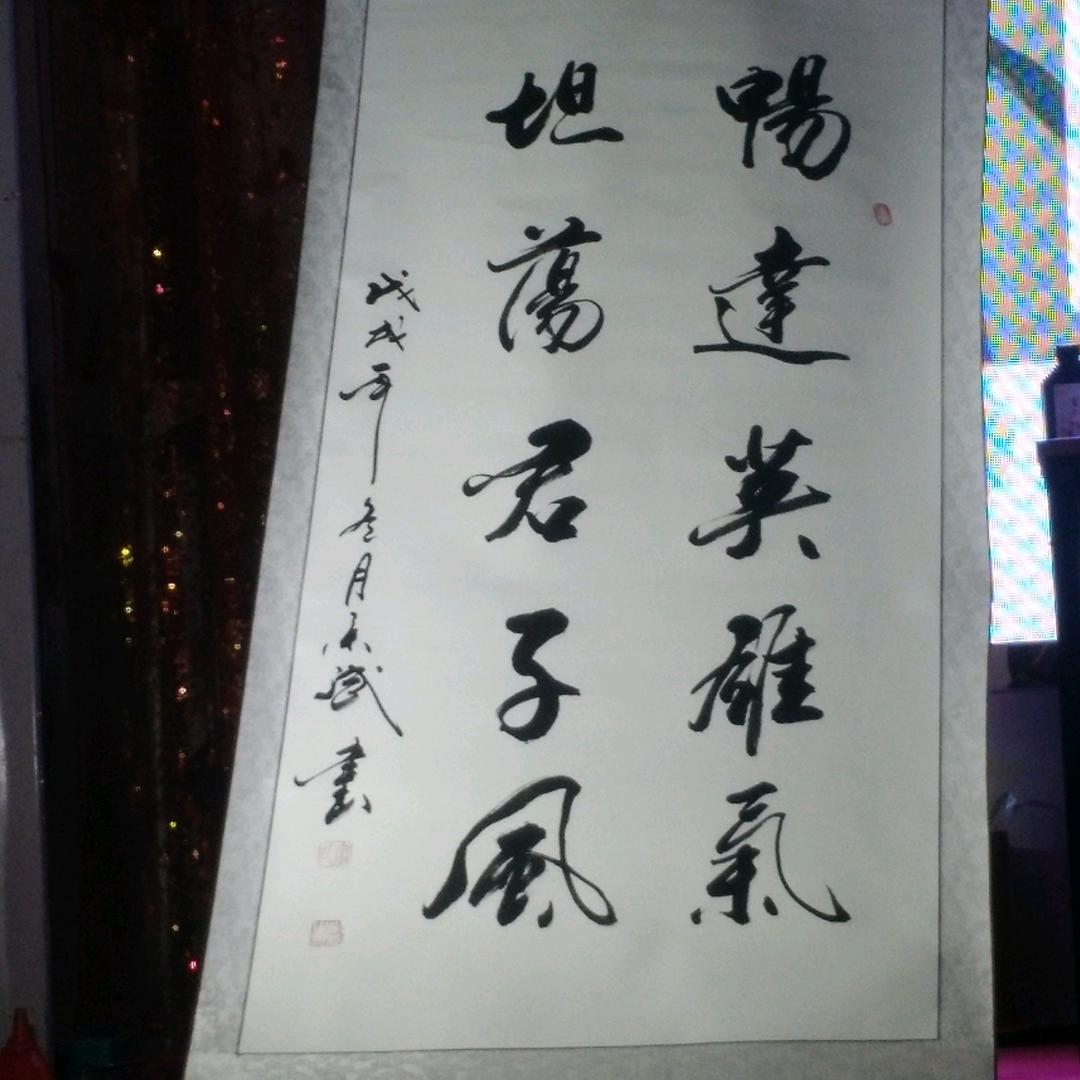 暢達英雄氣
坦蕩君子風
戊戌年冬月 書